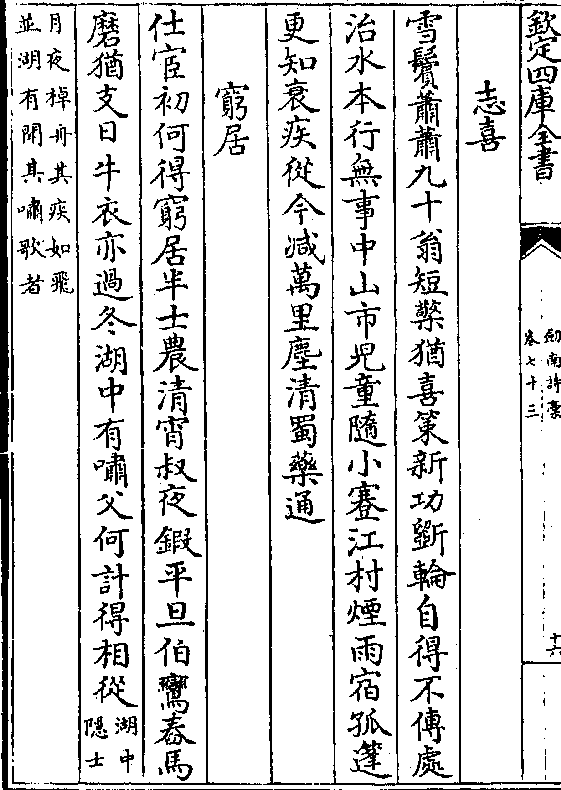 欽定四庫全書
劍南詩藁
卷七十三
十六
志喜
雪鬢蕭蕭九十翁短檠猶喜策新功斵輪自得不傳處
治水本行無事中山市兒童隨小蹇江村煙雨宿孤篷
更知衰疾從今减萬里塵清蜀藥通
窮居
仕宦初何得窮居半士農清宵叔夜鍜平旦伯鸞舂馬
磨猶支日牛衣亦過冬湖中有嘯父何計得相從
湖中
隱士
月夜棹舟其疾如飛
並湖有聞其嘯歌者